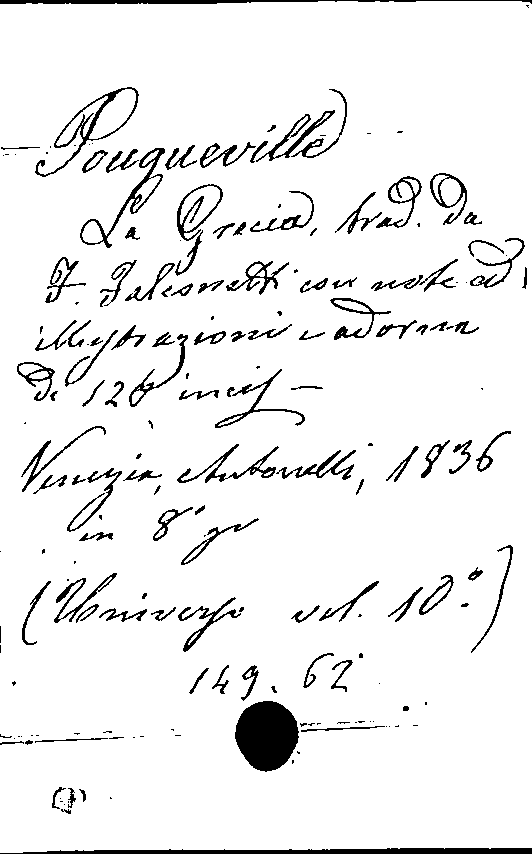 Pouqueville
La Grecia, trad. da
F. Falconetti con note ed
illustrazioni e adorna
di 120 incis —
Venezia, Antonelli, 1836
in 8° gr
(Universo vol. 10°.)
149. 62